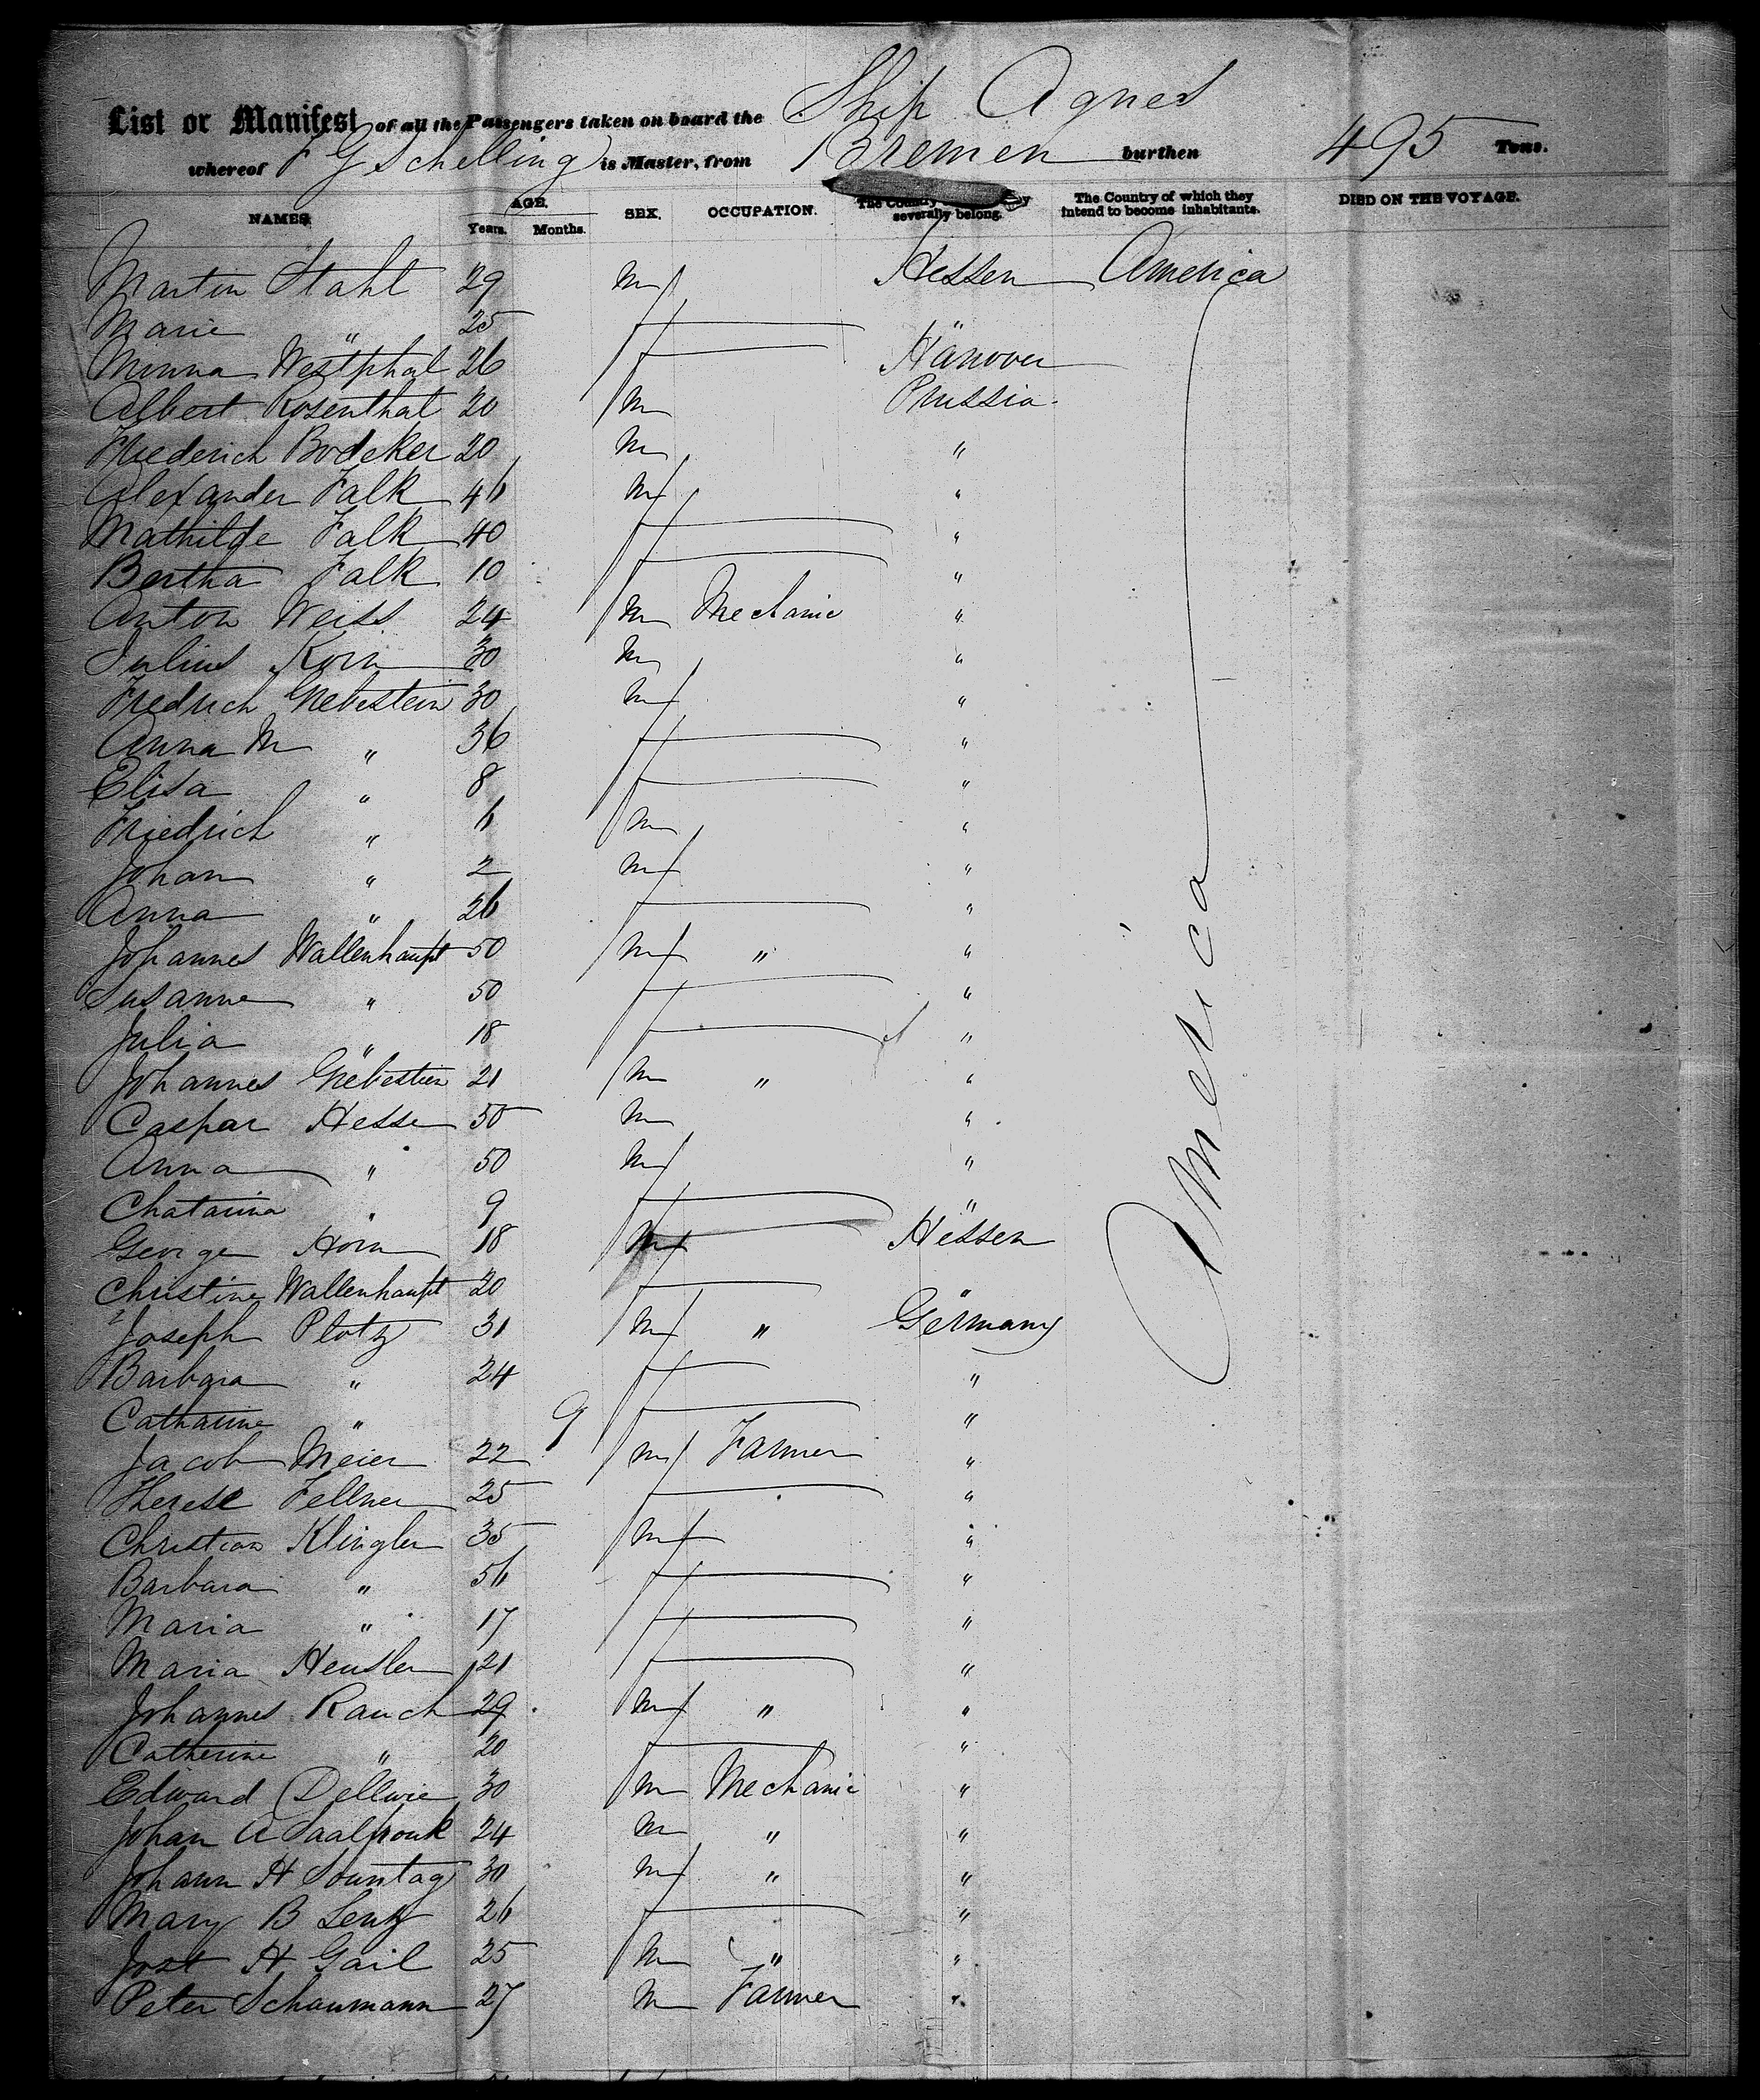 List or Manifest of all the Passengers taken on board the Ship Agnes
whereof F G Schelling is Master, from Bremen burthen 495 Tons.
NAMES AGE. Years. Months. SEX. OCCUPATION. The Country severally belong. The Country of which they intend to become inhabitants. DIED ON THE VOYAGE.
Martin Stahl 29 m Hessen America
Marie " 25 f "
Minna Westphal 26 f Hanover
Albert Rosenthal 20 m Prussia
Friederich Bodeker 20 m "
Alexander Falk 46 m "
Mathilde Falk 40 f "
Bertha Falk 10 f "
Anton Weiss 24 m Mechanic "
Julius Korn 30 m "
Fredrich Grebestein 30 m "
Anna M " 36 f "
Elisa " 8 f "
Friedrich " 6 m "
Johan " 2 m "
Anna " 26 f "
Johannes Wallenhaupt 50 m " "
Susanne " 50 f "
Julia " 18 f "
Johannes Grebestein 21 m " "
Caspar Hesse 50 m "
Anna " 50 m "
Chatarina " 9 f "
George Horn 18 m Hessen
Christine Wallenhaupt 20 f "
Joseph Plotz 31 m " Germany
Barbara " 24 f "
Catharine " 9 f "
Jacob Meier 22 m Farmer "
Therese Fellner 25 f "
Christian Klingler 35 m "
Barbara " 56 f "
Maria " 17 f "
Maria Heusler 21 f "
Johannes Rauch 29 m " "
Catherine " 20 f "
Edward Dellwie 30 m Mechanic "
Johan A Saalfrank 24 m " "
Johann H Sountag 30 m " "
Mary B Lentz 26 f "
Jost H Gail 25 m " "
Peter Schaumann 27 m Farmer "
America